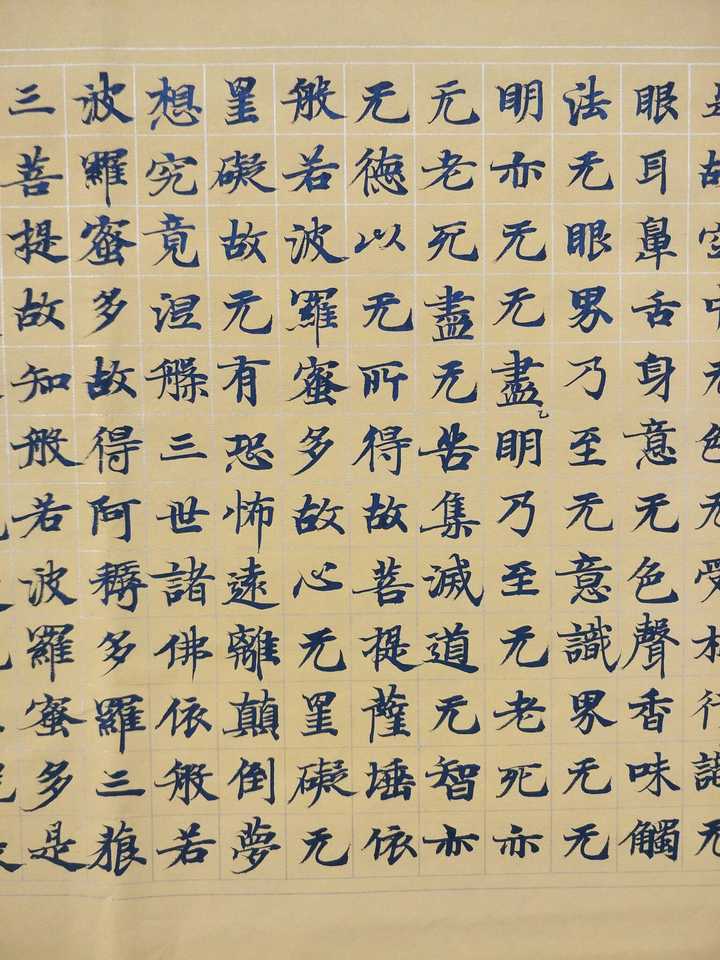 是故空中无色无受想行識无
眼耳鼻舌身意无色聲香味觸
法无眼界乃至无意識界无无
明亦无无盡明乃至无老死亦
无老死盡无苦集滅道无智亦
无德以无所得故菩提薩埵依
般若波羅蜜多故心无罣礙无
罣礙故无有恐怖遠離顛倒夢
想究竟涅槃三世諸佛依般若
波羅蜜多故得阿耨多羅三藐
三菩提故知般若波羅蜜多是